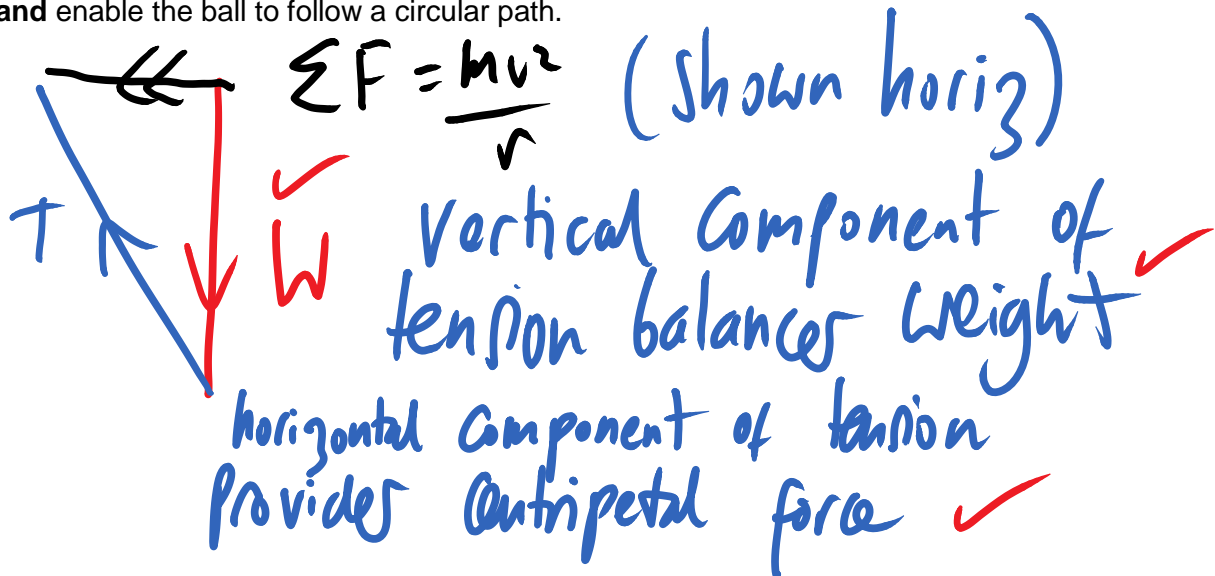 and enable the ball to follow a circular path.
ΣF = mv²/r (shown horiz)
T
W
Vertical component of
tension balances weight
horizontal component of tension
provides centripetal force